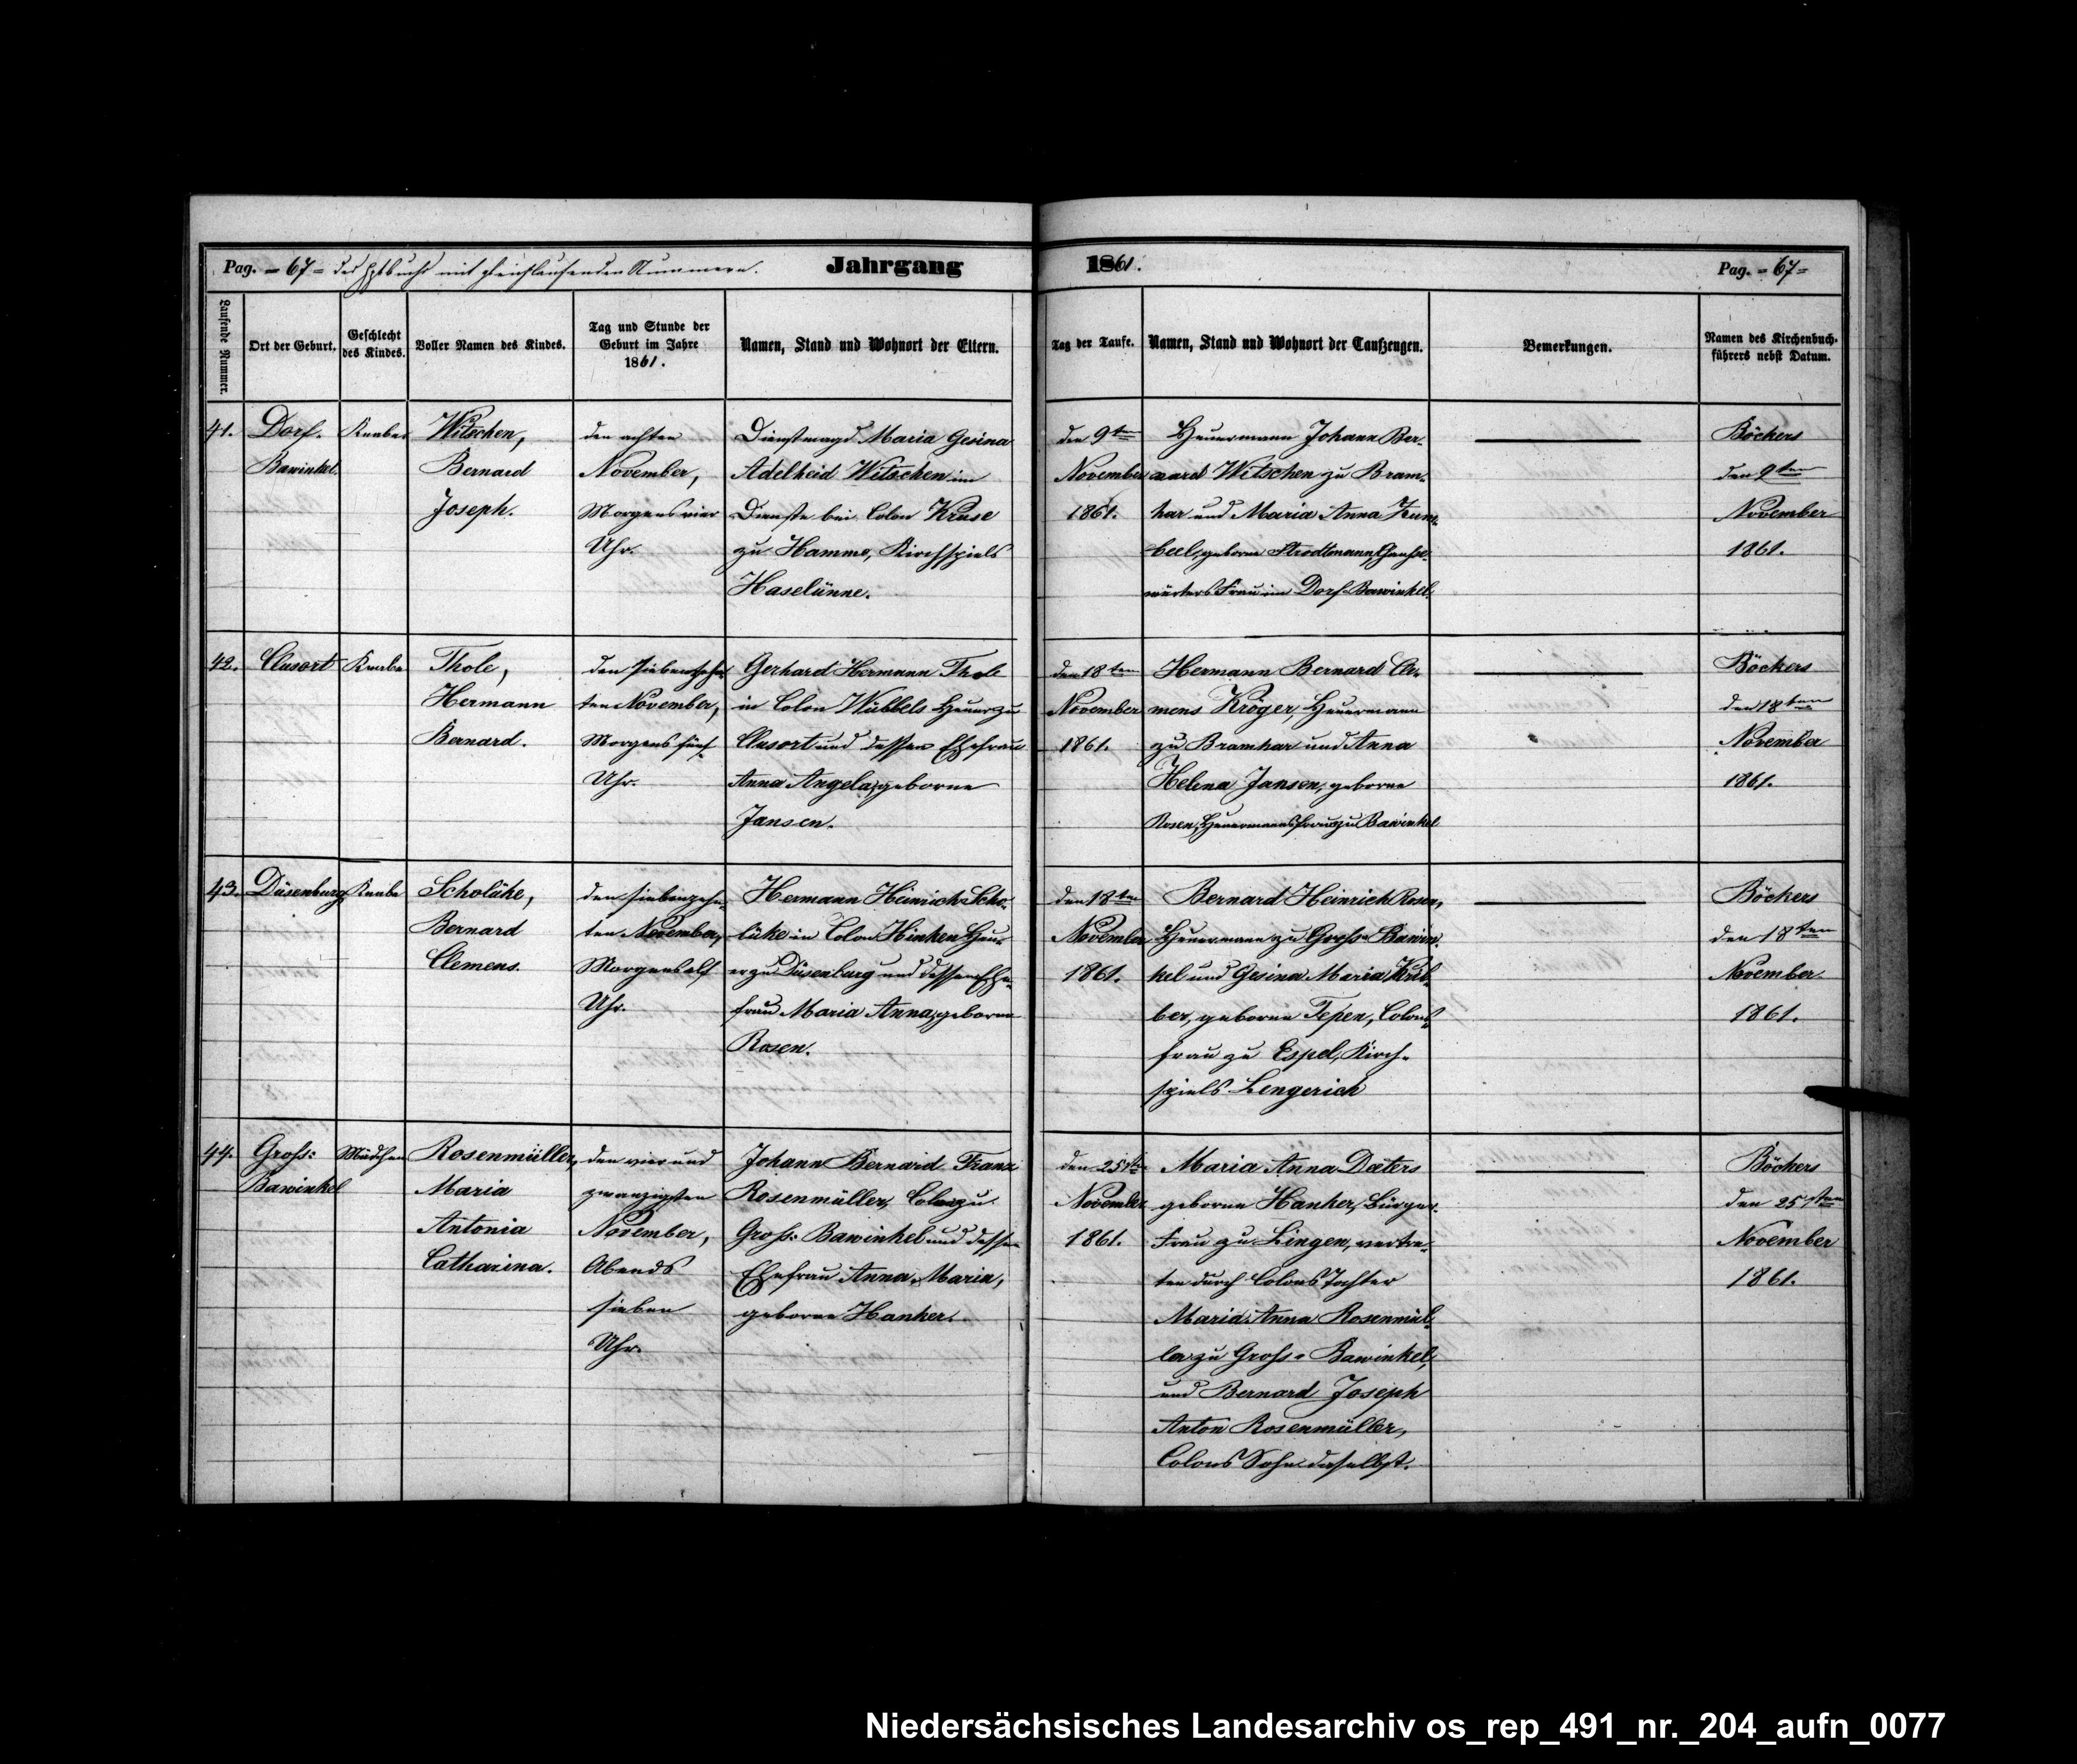 Pag. = 67 = des Hptbuchs mit gleichlaufenden Nummern. Jahrgang 1861. Pag. = 67 =
Laufende Nummer.
Ort der Geburt.
Geschlecht
des Kindes.
Voller Namen des Kindes.
Tag und Stunde der
Geburt im Jahre
1861.
Namen, Stand und Wohnort der Eltern.
Tag der Taufe.
Namen, Stand und Wohnort der Taufzeugen.
Bemerkungen.
Namen des Kirchenbuch-
führers nebst Datum.
41.
Dorf-
Bawinkel.
Knabe
Witschen,
Bernard
Joseph.
den achten
November,
Morgens vier
Uhr.
Dienstmagd Maria Gesina
Adelheid Witschen im
Dienste bei Colon Kruse
zu Hamme, Kirchspiels
Haselünne.
den 9ten
November
1861.
Heuermann Johann Ber-
nard Witschen zu Bram-
har und Maria Anna
geborne Strodtmann,
Frau im Dorf-Bawinkel.
Böckers
den 9ten
November
1861.
42.
Clusort
Knabe
Thole,
Hermann
Bernard.
den siebenzehn-
ten November,
Morgens fünf
Uhr.
Gerhard Hermann Thole
in Colon Wübbels Heuer zu
Clusort und dessen Ehefrau
Anna Angela, geborne
Jansen.
den 18ten
November
1861.
Hermann Bernard Cle-
mens Kröger, Heuermann
zu Bramhar und Anna
Helena Jansen, geborne
Rosen, Heuermanns Frau zu Bawinkel
Böckers
den 18ten
November
1861.
43.
Düsenburg
Knabe
Scholüke,
Bernard
Clemens.
den siebenzehn-
ten November,
Morgens elf
Uhr.
Hermann Heinrich Scho-
lüke in Colon Hinken Heu-
er zu Düsenburg und dessen Ehe-
frau Maria Anna, geborne
Rosen.
den 18ten
November
1861.
Bernard Heinrich Rosen,
Heuermann zu Groß-Bawin-
kel und Gesina Maria
geborne Tepen, Colons
frau zu Espel, Kirch-
spiels Lengerich
Böckers
den 18ten
November
1861.
44.
Groß-
Bawinkel
Mädchen
Rosenmüller,
Maria
Antonia
Catharina.
den vier und
zwanzigsten
November,
Abends
sieben
Uhr.
Johann Bernard Franz
Rosenmüller, Colon zu
Groß-Bawinkel und dessen
Ehefrau Anna Maria,
geborne Hanker.
den 25sten
November
1861.
Maria Anna Deters
geborne Hanker, Bürger-
Frau zu Lingen, vertre-
ten durch Colons Tochter
Maria Anna Rosenmül-
ler zu Groß-Bawinkel,
und Bernard Joseph
Anton Rosenmüller,
Colons Sohn daselbst.
Böckers
den 25sten
November
1861.
Niedersächsisches Landesarchiv os_rep_491_nr._204_aufn_0077